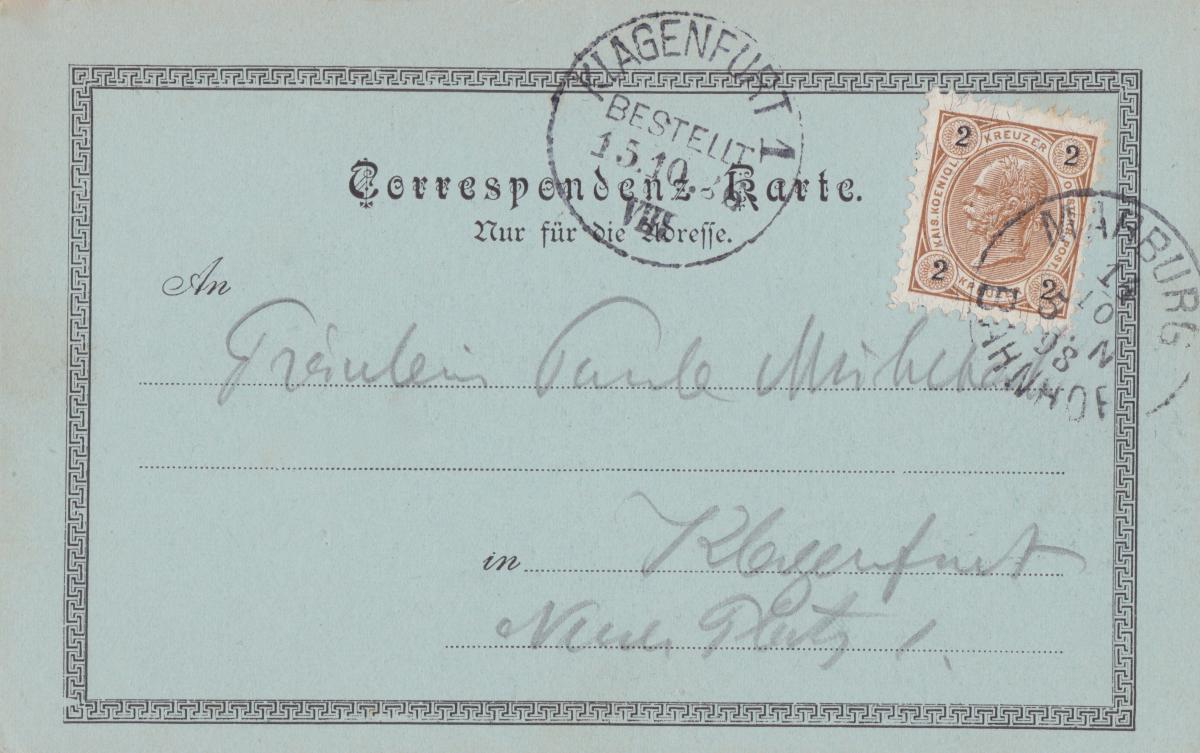 KLAGENFURT 1
BESTELLT
15.10.98
VIII
Correspondenz-Karte.
Nur für die Adresse.
2 KREUZER 2
KAIS. KOENIGL.
2 2
MARBURG
10
98 N
BAHNHOF
An
Fräulein Paula
in Klagenfurt
Neuer Platz 1.